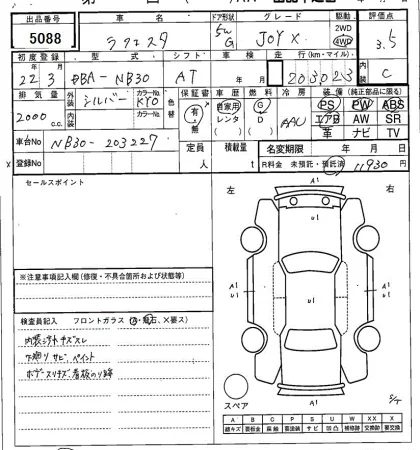 出品番号 車名 ドア形状 グレード 駆動 評価点
5088 ラフェスタ 5W G JOY X 2WD 4WD 3.5
初度登録 型式 シフト 車検 走行(km・マイル) 内装
22年3月 DBA-NB30 AT 年 月 203023 C
排気量 外装色 シルバー カラーNo. KYO 色替 保証書 車歴 燃料 冷房 装備(純正部品に限る)
2000 c.c. 内装色 カラーNo. 有・無 自家用 レンタ G D AAC PS PW ABS
エアB AW SR
革 ナビ TV
車台No NB30-203227 定員 人 積載量 t 名変期限 年 月 日
登録No R料金 未預託・預託済 11930 円
セールスポイント 左 右
A1
U1
A1 U1
U1
A1 U1
A1
※注意事項記入欄(修復・不具合箇所および状態等)
検査員記入 フロントガラス(A・飛石、×要ス)
内装シートキズスレ
下廻りサビ、ペイント
ボデースリキズ、看板のり跡
スペア
A B C P S U W XX X
線キズ 要板金 腐蝕 要塗装 サビ 凹凸 補修跡 交換跡 要交換